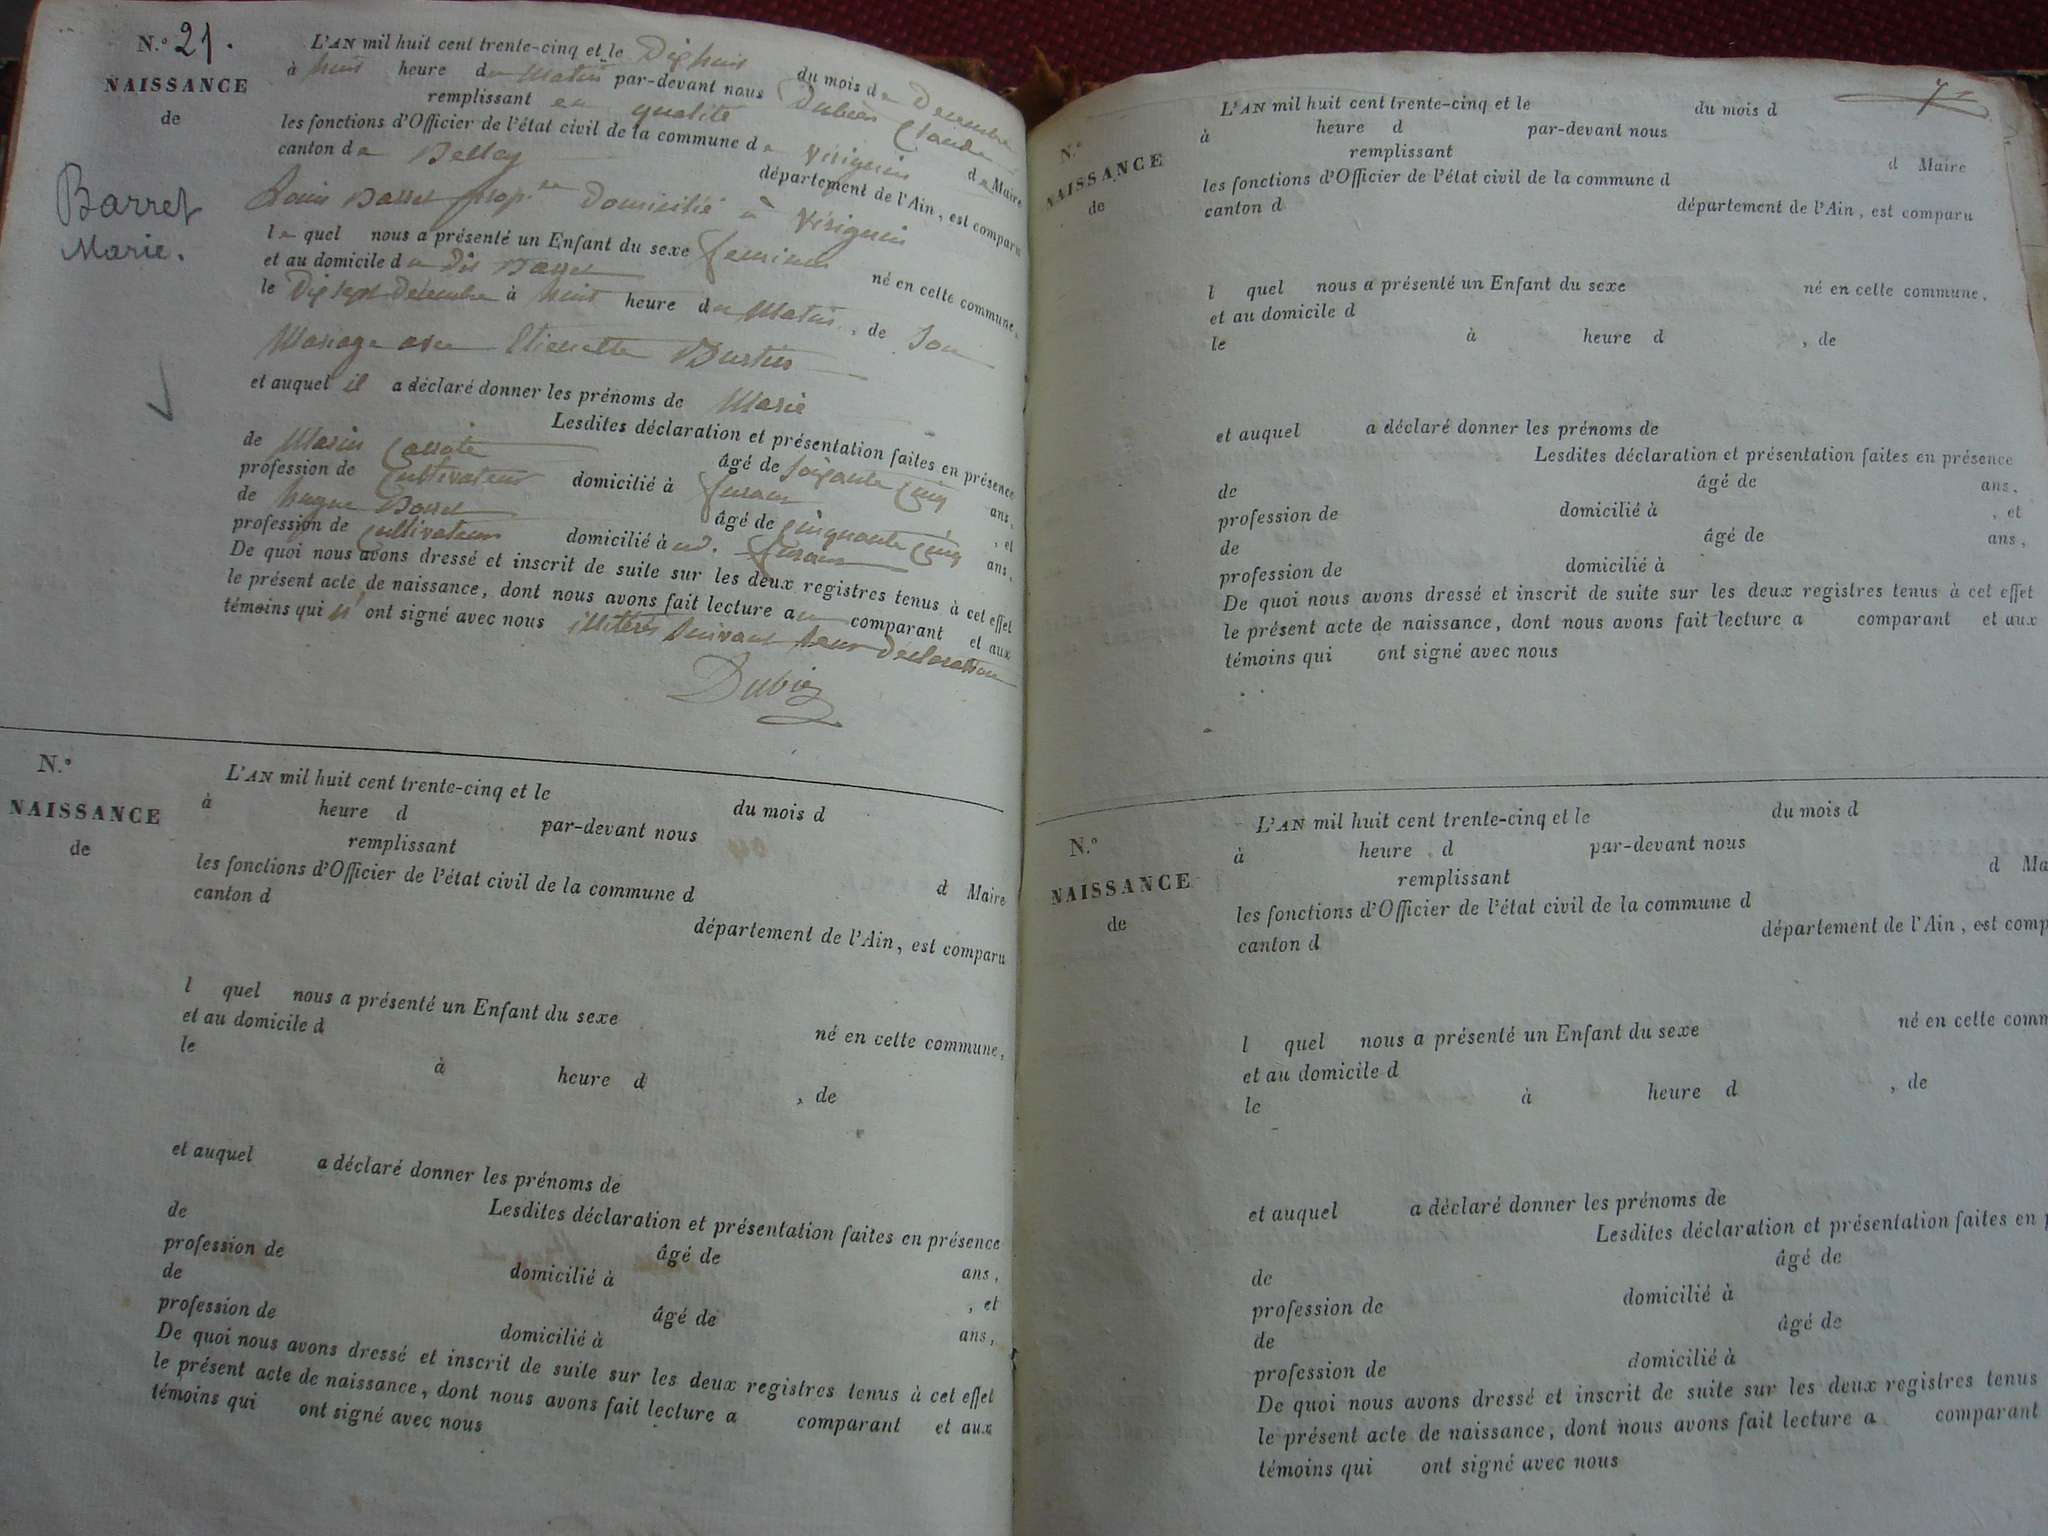 N.° 21.
NAISSANCE
de
Barret
Marie.
L'AN mil huit cent trente-cinq et le Dix huit du mois de Decembre
à huit heure du Matin par-devant nous Dubiez Claude
remplissant en qualité de Maire
les fonctions d'Officier de l'état civil de la commune de
canton de Belley département de l'Ain, est comparu
Louis Barret prop.re Domicilié à
lequel nous a présenté un Enfant du sexe feminin né en cette commune,
et au domicile du dit Barret
le Dix sept Decembre à huit heure du Matin, de Son
Mariage avec Etiennette
et auquel il a déclaré donner les prénoms de Marie
Lesdites déclaration et présentation faites en présence
de âgé de soixante cinq ans,
profession de cultivateur domicilié à, et
de Barret âgé de cinquante cinq ans,
profession de cultivateur domicilié à
De quoi nous avons dressé et inscrit de suite sur les deux registres tenus à cet effet
le présent acte de naissance, dont nous avons fait lecture au comparant et aux
témoins qui n'ont signé avec nous illitérés suivant leur declaration
Dubiez
N.°
NAISSANCE
de
L'AN mil huit cent trente-cinq et le du mois d
à heure d par-devant nous
remplissant d Maire
les fonctions d'Officier de l'état civil de la commune d
canton d département de l'Ain, est comparu
l quel nous a présenté un Enfant du sexe né en cette commune,
et au domicile d
le à heure d , de
et auquel a déclaré donner les prénoms de
Lesdites déclaration et présentation faites en présence
de âgé de ans,
profession de domicilié à , et
de âgé de ans,
profession de domicilié à
De quoi nous avons dressé et inscrit de suite sur les deux registres tenus à cet effet
le présent acte de naissance, dont nous avons fait lecture a comparant et aux
témoins qui ont signé avec nous
N.°
NAISSANCE
de
L'AN mil huit cent trente-cinq et le du mois d
à heure d par-devant nous
remplissant d Maire
les fonctions d'Officier de l'état civil de la commune d
canton d département de l'Ain, est comparu
l quel nous a présenté un Enfant du sexe né en cette commune,
et au domicile d
le à heure d , de
et auquel a déclaré donner les prénoms de
Lesdites déclaration et présentation faites en présence
de âgé de ans,
profession de domicilié à , et
de âgé de ans,
profession de domicilié à
De quoi nous avons dressé et inscrit de suite sur les deux registres tenus à cet effet
le présent acte de naissance, dont nous avons fait lecture a comparant et aux
témoins qui ont signé avec nous
N.°
NAISSANCE
de
L'AN mil huit cent trente-cinq et le du mois d
à heure d par-devant nous
remplissant d Ma
les fonctions d'Officier de l'état civil de la commune d
canton d département de l'Ain, est comp
l quel nous a présenté un Enfant du sexe né en cette comm
et au domicile d
le à heure d , de
et auquel a déclaré donner les prénoms de
Lesdites déclaration et présentation faites en p
de âgé de
profession de domicilié à
de âgé de
profession de domicilié à
De quoi nous avons dressé et inscrit de suite sur les deux registres tenus
le présent acte de naissance, dont nous avons fait lecture a comparant
témoins qui ont signé avec nous